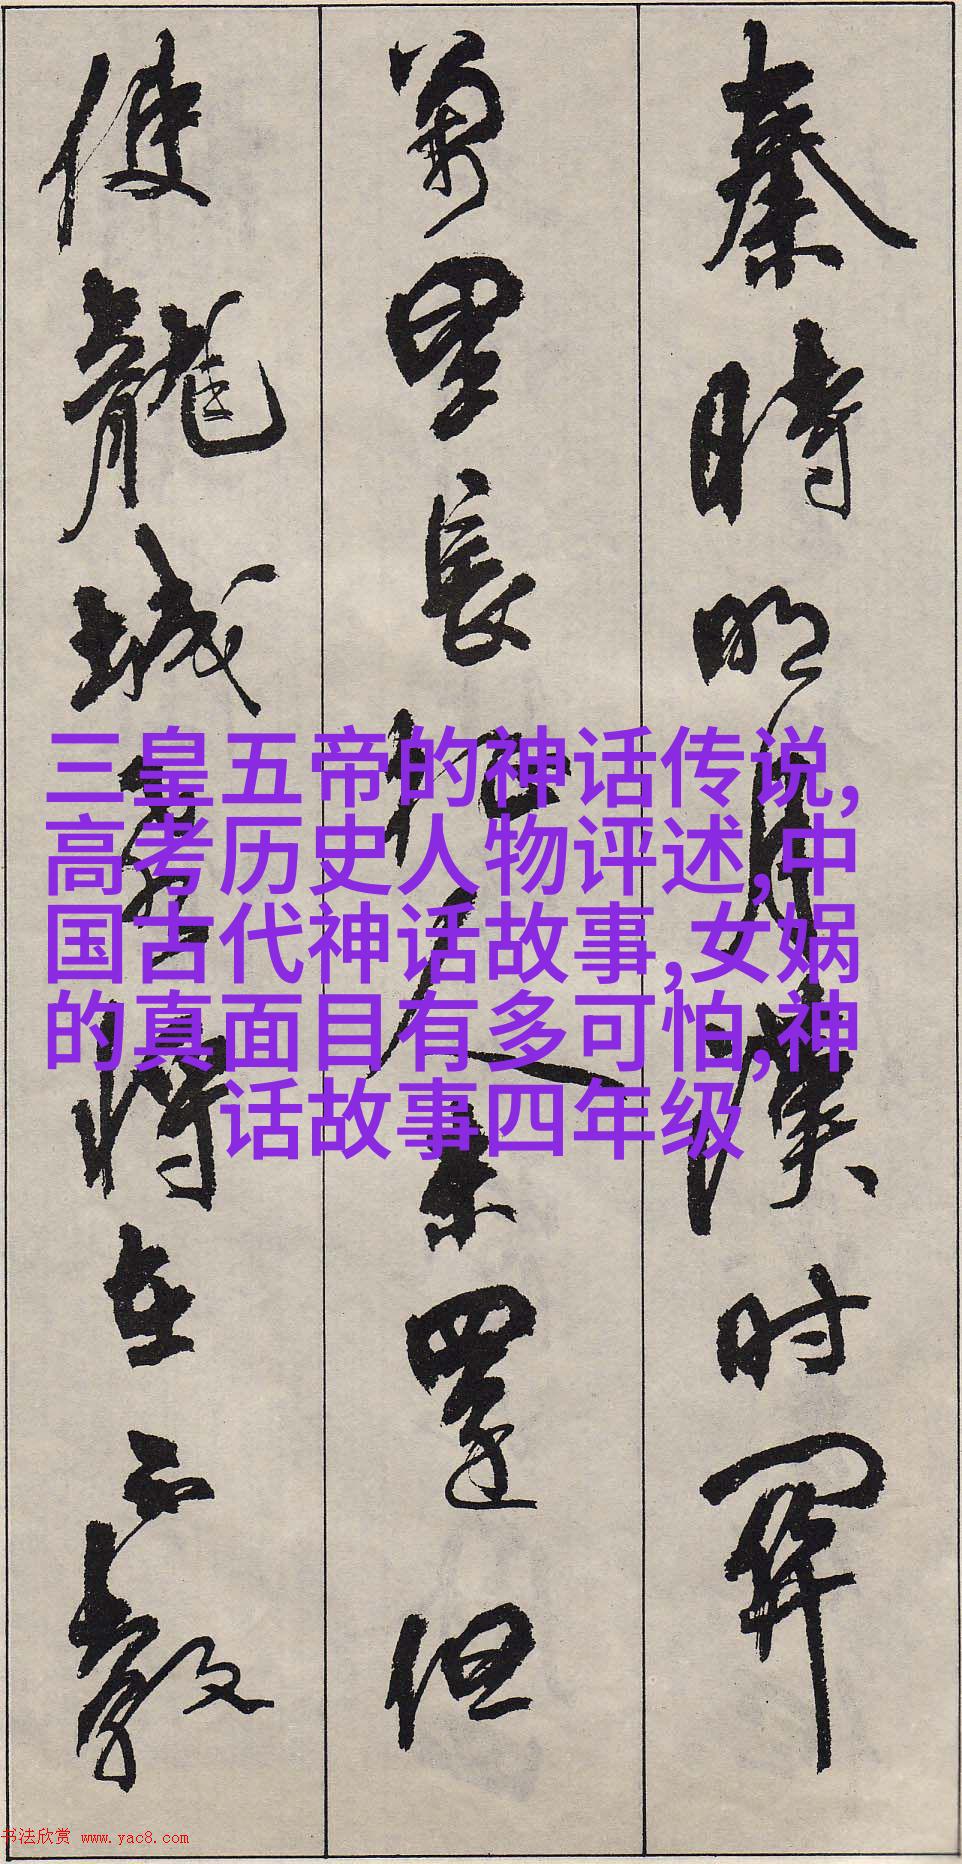 秦時明月漢时関
萬里長征人未還但
使龍城飛将在不教
三皇五帝的神话传说,
高考历史人物评述,中
国古代神话故事,女娲
的真面目有多可怕,神
话故事四年级
书法欣赏 www.yac8.com